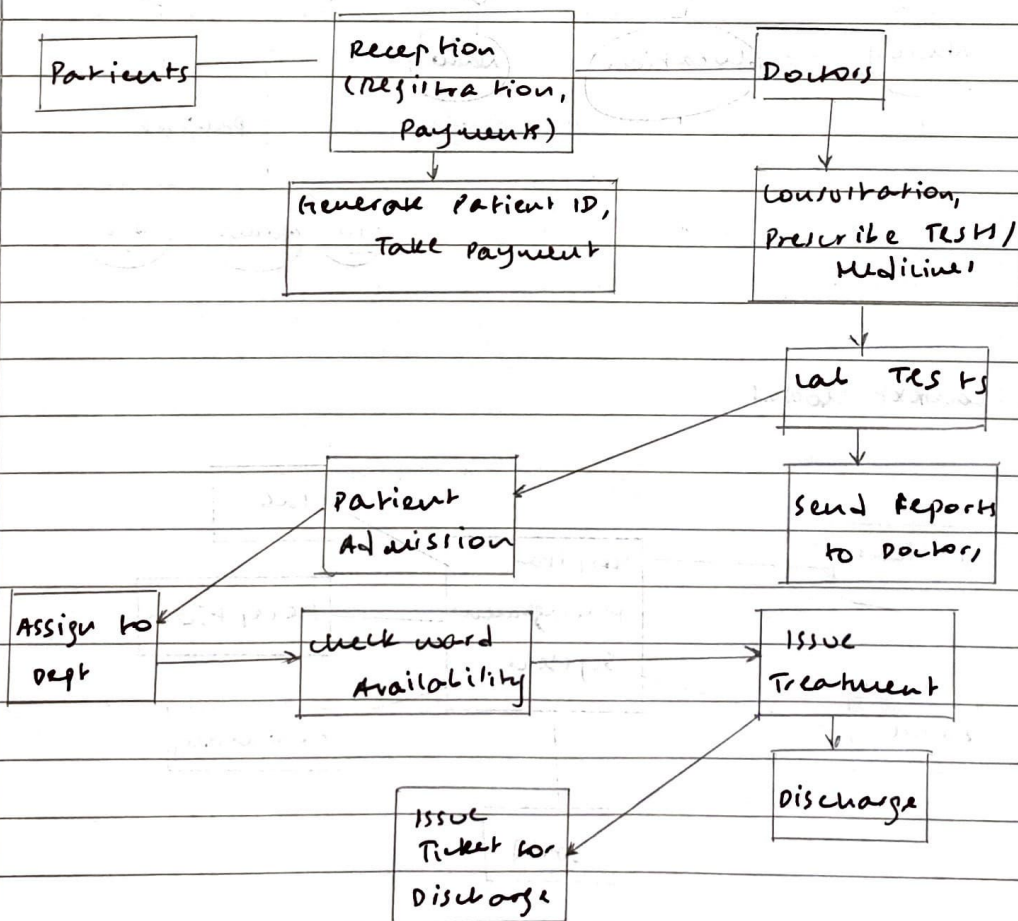 Patients
Reception
(Registration,
Payments)
Doctors
Generate Patient ID,
Take Payment
Consultation,
Prescribe Tests/
Medicines
Lab Tests
Patient
Admission
Send Reports
to Doctors
Assign to
Dept
Check ward
Availability
Issue
Treatment
Discharge
Issue
Ticket for
Discharge